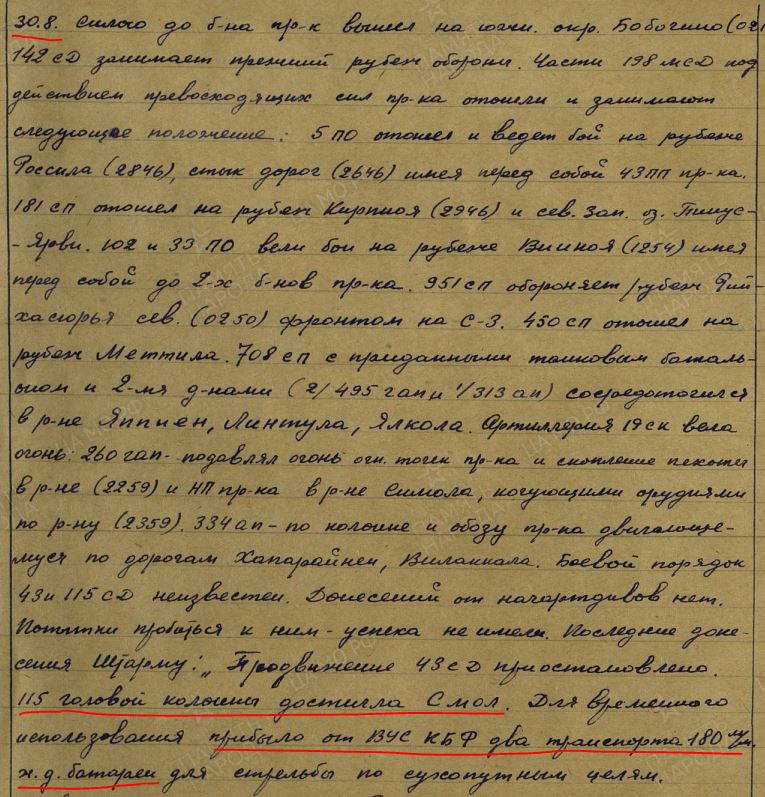 30.8. Силою до б-на пр-к вышел на южн. окр. Бобочино (021
142 сД занимает прежний рубеж обороны. Части 198 мсД под
действием превосходящих сил пр-ка отошли и занимают
следующее положение: 5 ПО отошел и ведет бой на рубеже
Россила (2846), стык дорог (2646) имея перед собой 43 ПП пр-ка.
181 сп отошел на рубеж Кирпиоя (2946) и сев. зап. оз. Пиус-
-Ярви. 102 и 33 ПО вели бои на рубеже Вииноя (1254) имея
перед собой до 2-х б-нов пр-ка. 951 сп обороняет рубеж Рий-
хисюрья сев. (0250) фронтом на С-З. 450 сп отошел на
рубеж Меттила. 708 сп с приданными танковым баталь-
оном и 2-мя д-нами (2/495 гап и 1/313 ап) сосредоточился
в р-не Яппиен, Линтула, Ялкола. Артиллерия 19 ск вела
огонь: 260 гап - подавлял огонь огн. точек пр-ка и скопление пехоты
в р-не (2259) и НП пр-ка в р-не Симола, кочующими орудиями
по р-ну (2359). 334 ап - по колонне и обозу пр-ка двигающе-
муся по дорогам Хапарайнен, Вилаккала. Боевой порядок
43 и 115 сД неизвестен. Донесений от начартдивов нет.
Попытки пробиться к ним - успеха не имели. Последние доне-
сения Штарму: „Продвижение 43 сД приостановлено.
115 головой колонны достигла Смол. Для временного
использования прибыло от ВУС КБФ два транспорта 180 м/м.
ж.д. батареи для стрельбы по сухопутным целям.